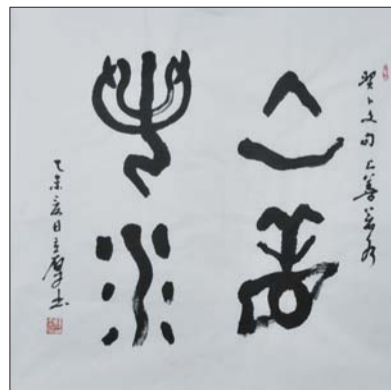 契卜文句上善若水
上善
若水
乙未夏日书